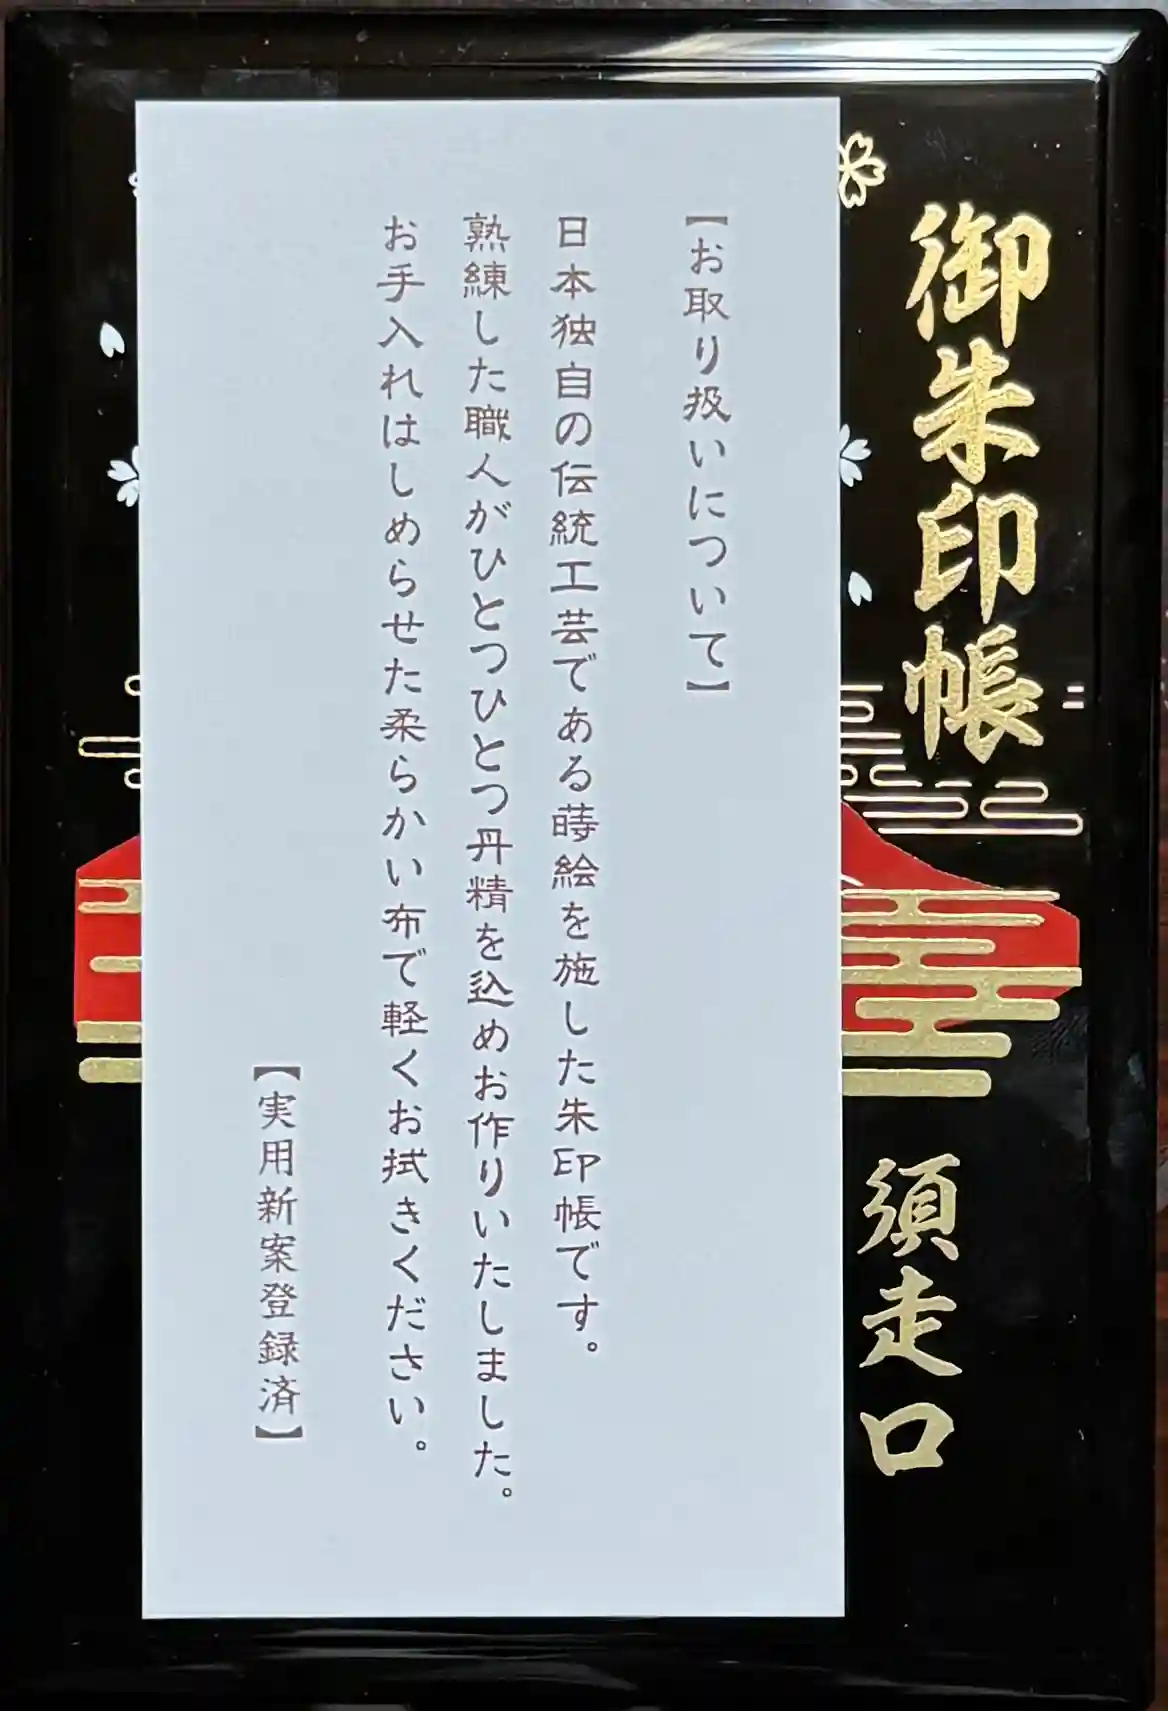 御朱印帳
須走口
【お取り扱いについて】
日本独自の伝統工芸である蒔絵を施した朱印帳です。
熟練した職人がひとつひとつ丹精を込めお作りいたしました。
お手入れはしめらせた柔らかい布で軽くお拭きください。
【実用新案登録済】